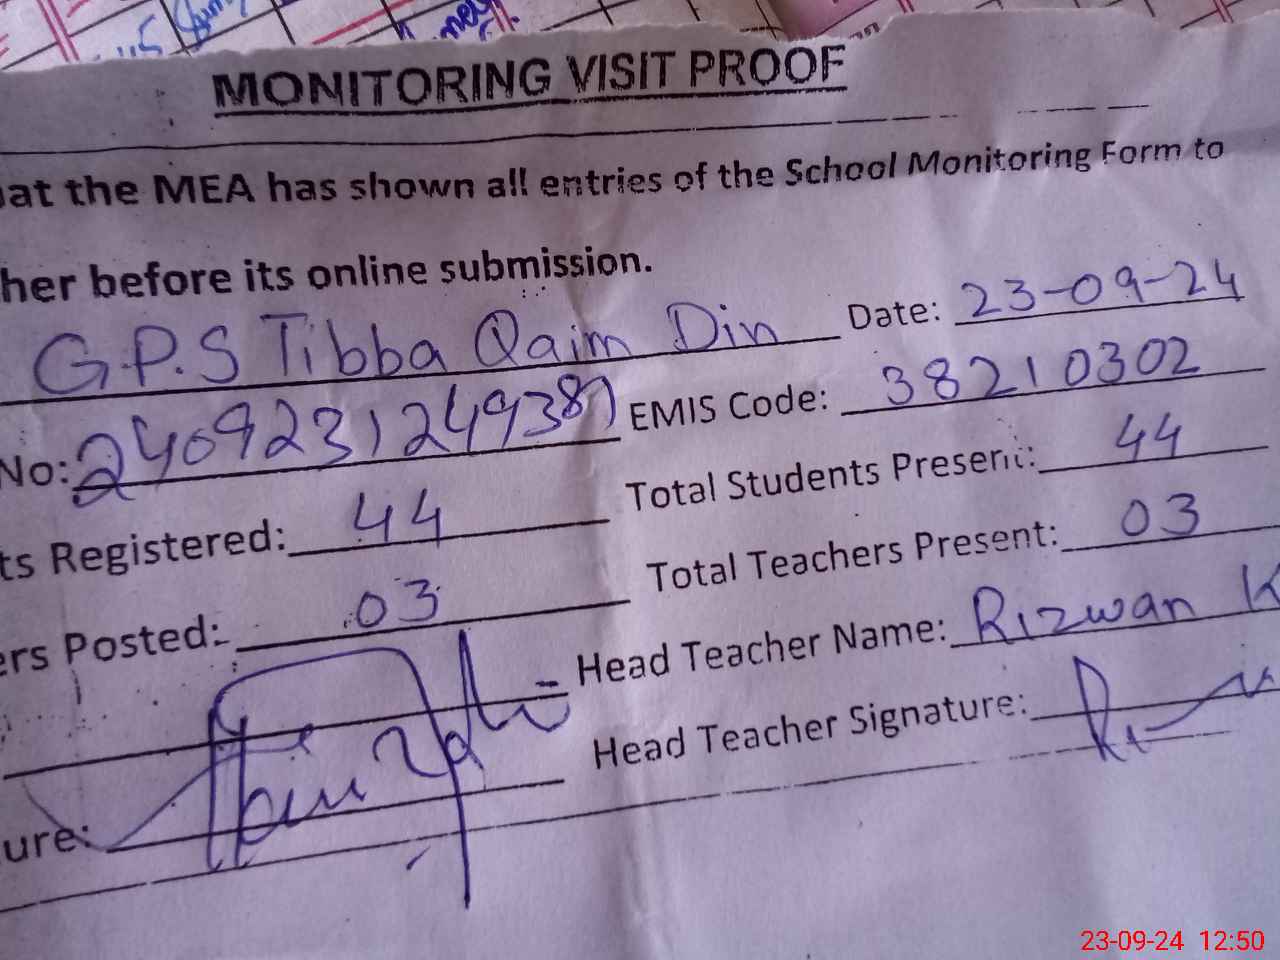 MONITORING VISIT PROOF
at the MEA has shown all entries of the School Monitoring Form to
her before its online submission.
G.P.S Tibba Qaim Din Date: 23-09-24
No: 2409231249387 EMIS Code: 38210302
ts Registered: 44 Total Students Present: 44
ers Posted: 03 Total Teachers Present: 03
Head Teacher Name: Rizwan K
ure: Head Teacher Signature:
23-09-24 12:50